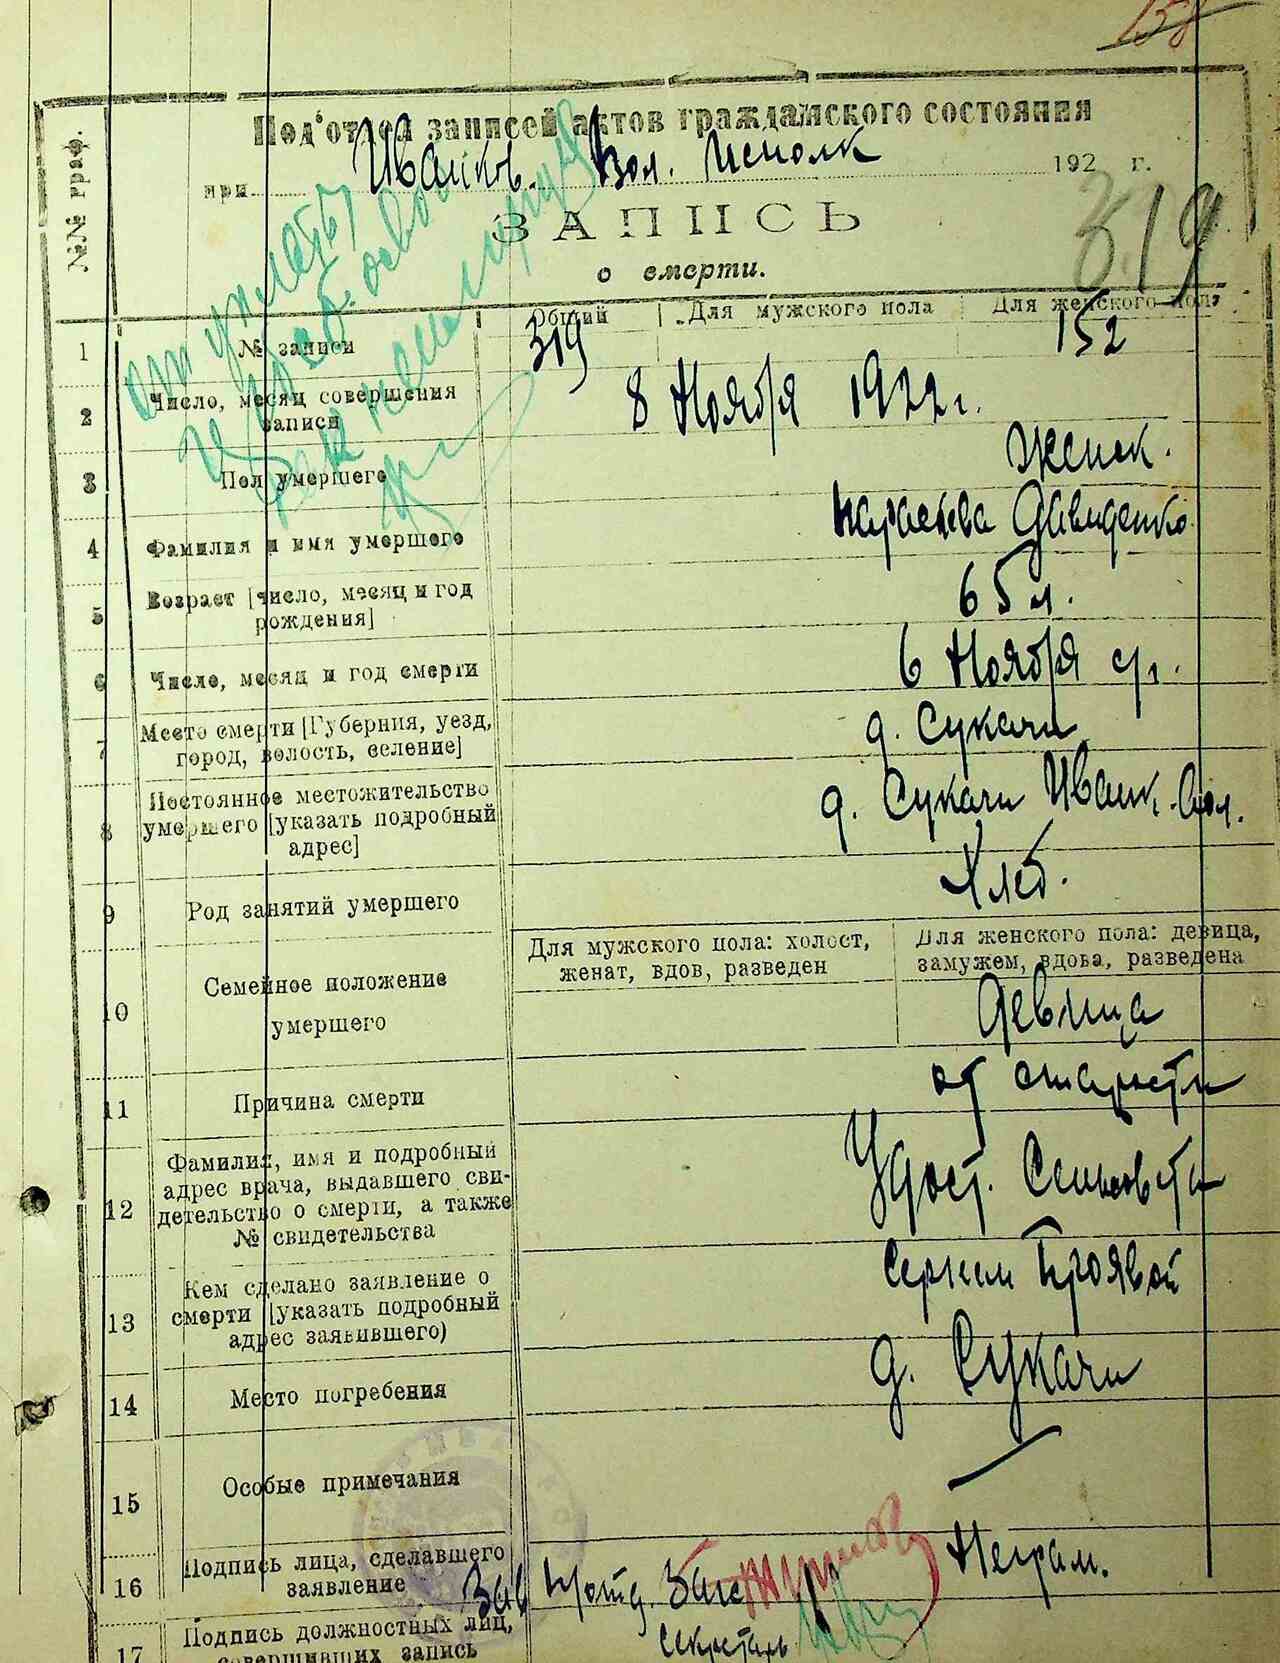 158
Под'отдел записей актов гражданского состояния
при Иванков. Вол. Исполк 192 г.
ЗАПИСЬ
о смерти.
319
№№ граф.
Общий Для мужского пола Для женского пола
1 № записи 319 152
2 Число, месяц совершения записи 8 Ноября 1922 г.
3 Пол умершего Женск.
4 Фамилия и имя умершего Параскева Давиденко
5 Возраст [число, месяц и год рождения] 65 л.
6 Число, месяц и год смерти 6 Ноября с/г.
7 Место смерти [Губерния, уезд, город, волость, селение] д. Сукачи
8 Постоянное местожительство умершего [указать подробный адрес] д. Сукачи Иванк. Вол.
9 Род занятий умершего Хлеб.
Для мужского пола: холост, женат, вдов, разведен
Для женского пола: девица, замужем, вдова, разведена
10 Семейное положение умершего Девица
11 Причина смерти от старости
12 Фамилия, имя и подробный адрес врача, выдавшего свидетельство о смерти, а также № свидетельства Удост. Сельсовета
13 Кем сделано заявление о смерти [указать подробный адрес заявившего)
14 Место погребения д. Сукачи
15 Особые примечания —
16 Подпись лица, сделавшего заявление Неграм.
17 Подпись должностных лиц, совершивших запись
Зав. Загс
Секретарь